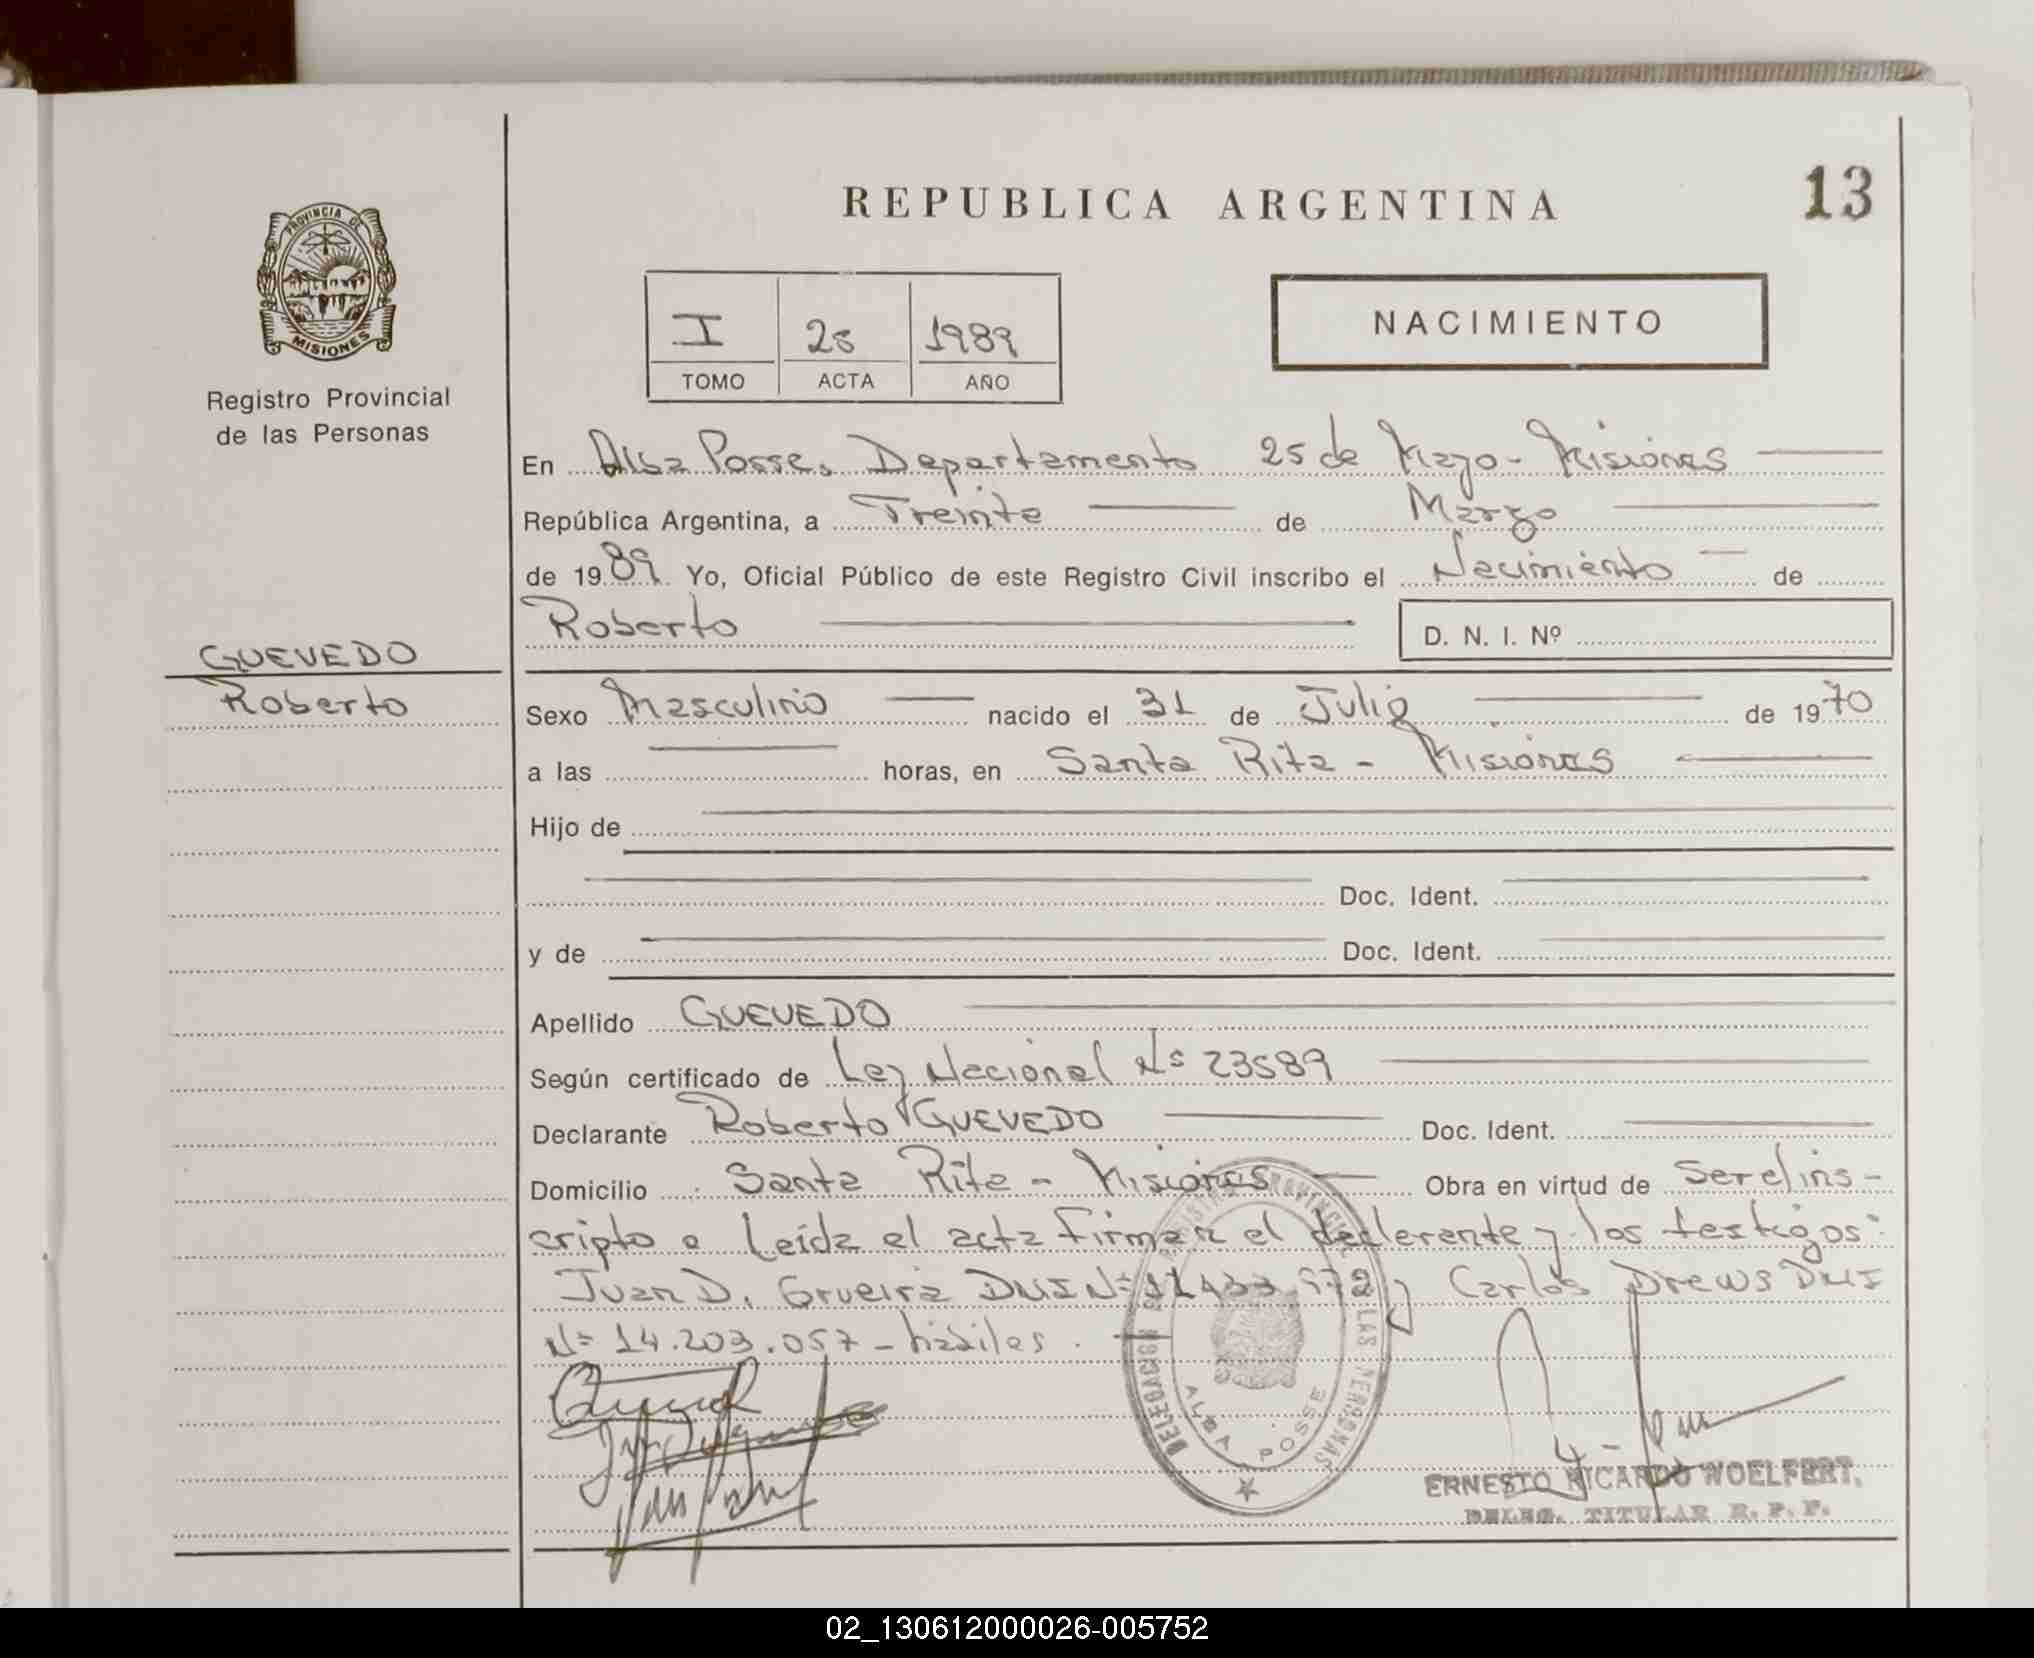 REPUBLICA ARGENTINA
13
PROVINCIA DE
MISIONES
Registro Provincial
de las Personas
I 25 1989
TOMO ACTA AÑO
NACIMIENTO
En Alba Posse, Departamento 25 de Mayo - Misiones
República Argentina, a Treinta de Marzo
de 1989 Yo, Oficial Público de este Registro Civil inscribo el Nacimiento de
Roberto D. N. I. Nº
GUEVEDO
Roberto
Sexo Masculino nacido el 31 de Julio de 1970
a las horas, en Santa Rita - Misiones
Hijo de
Doc. Ident.
y de Doc. Ident.
Apellido GUEVEDO
Según certificado de Ley Nacional Nº 23589
Declarante Roberto GUEVEDO Doc. Ident.
Domicilio Santa Rita - Misiones Obra en virtud de Ser el ins-
cripto e Leída el acta firman el declarante y los testigos:
Juan D. DNI Nº y Carlos Drews DNI
Nº 14.203.057 - hábiles.
DELEGACION REGISTRO PROVINCIAL DE LAS PERSONAS
ALBA POSSE
ERNESTO RICARDO WOELFERT.
DELEG. TITULAR R. P. P.
02_130612000026-005752